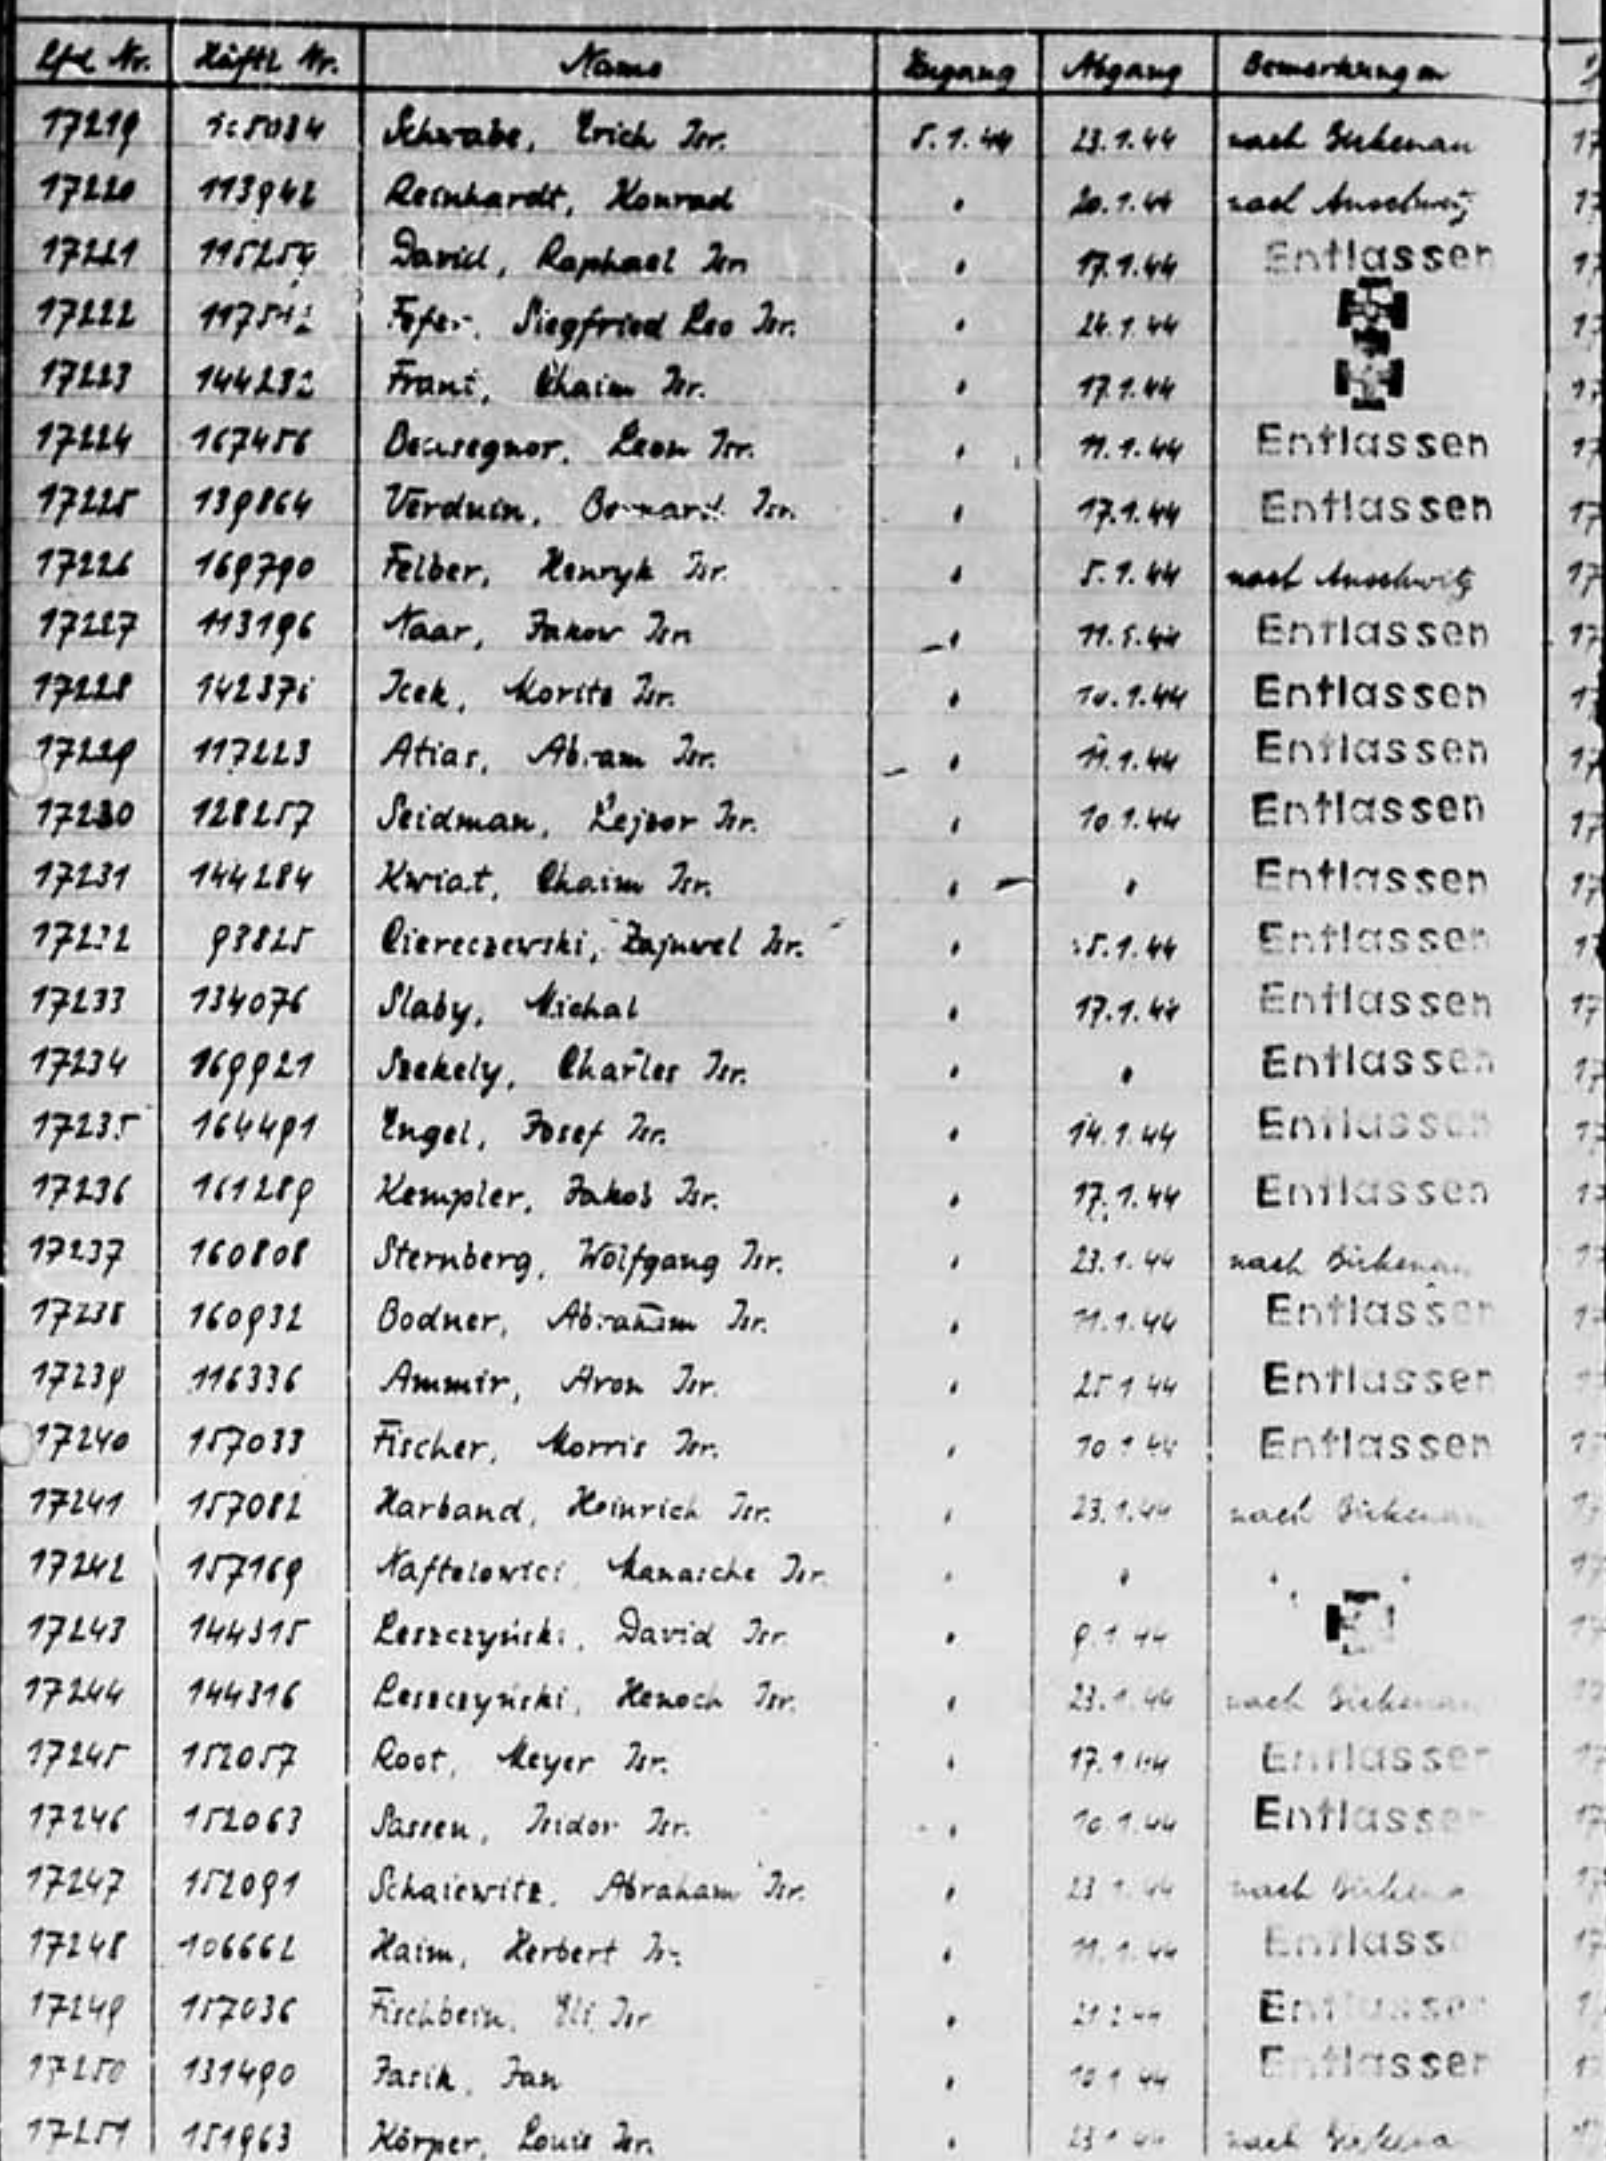 Lfd Nr. Häftl. Nr. Name Zugang Abgang Bemerkungen
17219 105034 Schwabe, Erich Isr. 5.1.44 23.1.44 nach Birkenau
17220 113942 Reinhardt, Konrad " 20.1.44 nach Auschwitz
17221 115254 David, Raphael Isr. " 17.1.44 Entlassen
17222 Siegfried Leo Isr. " 24.1.44
17223 144232 Chaim Isr. " 17.1.44
17224 167456 Leon Isr. " 11.1.44 Entlassen
17225 139864 Verduin, Isr. " 17.1.44 Entlassen
17226 169790 Felber, Henryk Isr. " 5.1.44 nach Auschwitz
17227 113196 Naar, Jakow Isr. " Entlassen
17228 Icek, Moritz Isr. " 10.1.44 Entlassen
17229 117223 Atias, Abram Isr. " 11.1.44 Entlassen
17230 128257 Seidman, Lejzor Isr. " 10.1.44 Entlassen
17231 144284 Kwiat, Chaim Isr. " " Entlassen
17232 93825 Ciereczewski, Zajnwel Isr. " Entlassen
17233 134076 Slaby, Michal " 17.1.44 Entlassen
17234 169921 Szekely, Charles Isr. " " Entlassen
17235 164491 Engel, Josef Isr. " 14.1.44 Entlassen
17236 161289 Kempler, Jakob Isr. " 17.1.44 Entlassen
17237 160808 Sternberg, Wolfgang Isr. " 23.1.44 nach Birkenau
17238 160932 Bodner, Abraham Isr. " 11.1.44 Entlassen
17239 116336 Ammir, Aron Isr. " 25.1.44 Entlassen
17240 157033 Fischer, Morris Isr. " 10.1.44 Entlassen
17241 157082 Harband, Heinrich Isr. " 23.1.44 nach Birkenau
17242 157169 Naftolowici, Manasche Isr. " " "
17243 144315 Leszczyński, David Isr. " 9.1.44
17244 144316 Leszczyński, Henoch Isr. " 23.1.44 nach Birkenau
17245 152057 Root, Meyer Isr. " 17.1.44 Entlassen
17246 152063 Sassen, Isidor Isr. " 10.1.44 Entlassen
17247 152091 Schaiewitz, Abraham Isr. " 23.1.44 nach Birkenau
17248 106662 Haim, Herbert Isr. " 11.1.44 Entlassen
17249 157036 Fischbein, Isr. " Entlassen
17250 131490 Jasik, Jan " 10.1.44 Entlassen
17251 151963 Körper, Louis Isr. " 23.1.44 nach Birkenau